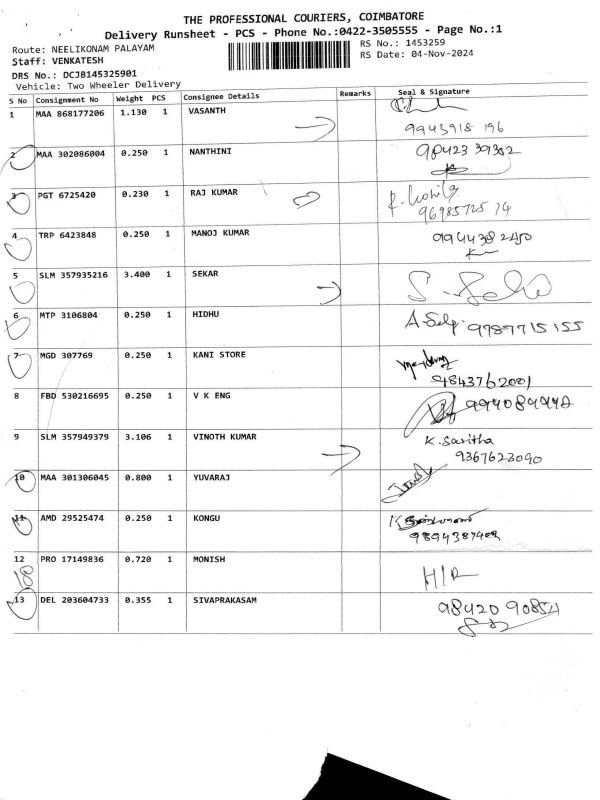 THE PROFESSIONAL COURIERS, COIMBATORE
Delivery Runsheet - PCS - Phone No.:0422-3505555 - Page No.:1
Route: NEELIKONAM PALAYAM RS No.: 1453259
Staff: VENKATESH RS Date: 04-Nov-2024
DRS No.: DCJB145325901
Vehicle: Two Wheeler Delivery
S No Consignment No Weight PCS Consignee Details Remarks Seal & Signature
1 MAA 868177206 1.130 1 VASANTH
9943918 196
2 MAA 302086004 0.250 1 NANTHINI 98423 39382
3 PGT 6725420 0.230 1 RAJ KUMAR
96985725 74
4 TRP 6423848 0.250 1 MANOJ KUMAR 9944382450
5 SLM 357935216 3.400 1 SEKAR
6 MTP 3106804 0.250 1 HIDHU 9787715155
7 MGD 307769 0.250 1 KANI STORE
9843762001
8 FBD 530216695 0.250 1 V K ENG
9 SLM 357949379 3.106 1 VINOTH KUMAR K. Saritha
9367623090
10 MAA 301306045 0.800 1 YUVARAJ
11 AMD 29525474 0.250 1 KONGU
12 PRO 17149836 0.720 1 MONISH
H/R
13 DEL 203604733 0.355 1 SIVAPRAKASAM 98420 90854